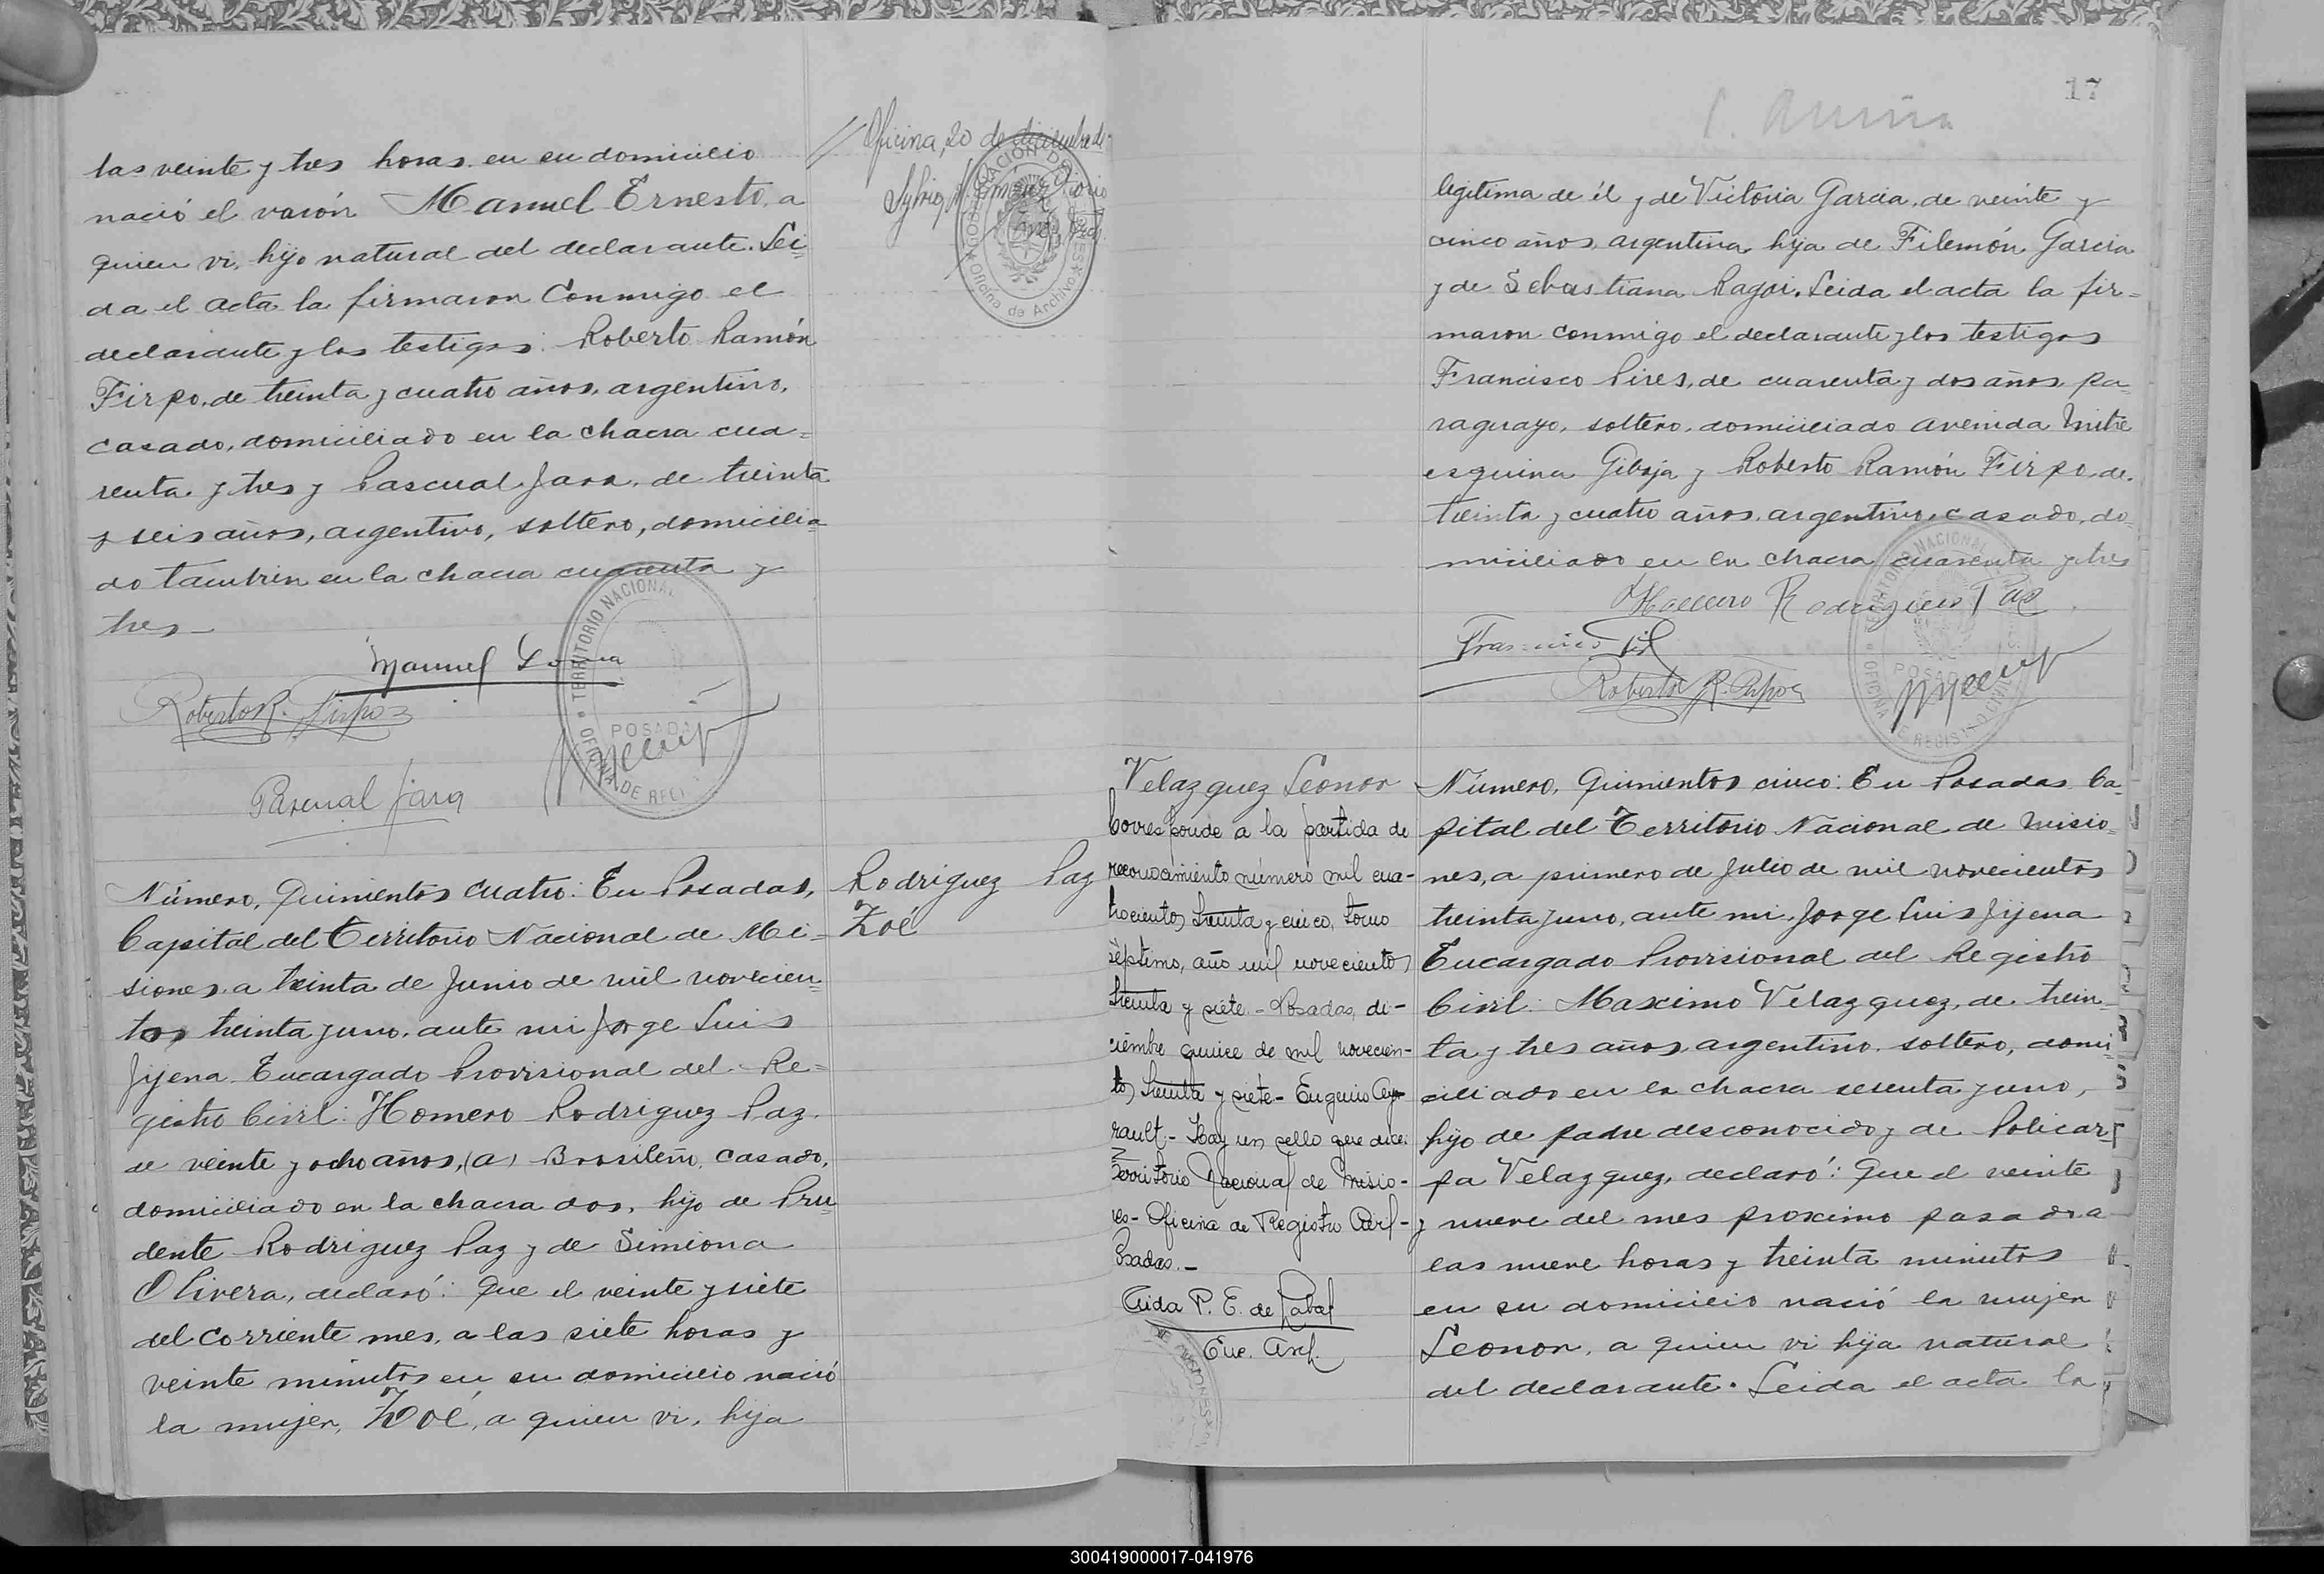 las veinte y tres horas en su domicilio
nació el varón Manuel Ernesto, a
quien vi, hijo natural del declarante. Leí=
da el acta la firmaron conmigo el
declarante y los testigos: Roberto Ramón
Firpo, de treinta y cuatro años, argentino,
casado, domiciliado en la chacra cua=
renta y tres y Pascual Jara, de treinta
y seis años, argentino, soltero, domicilia=
do tambien en la chacra cuarenta y
tres—
Manuel
Roberto R. Firpo
Pascual Jara
TERRITORIO NACIONAL
POSADA
OFICINA DE REGI
// Oficina, 20 de diciembre de
Sylvia
Oficina de Archivo
Número, Quinientos cuatro: En Posadas,
Capital del Territorio Nacional de Mi=
siones, a treinta de Junio de mil novecien=
tos treinta y uno, ante mi Jorge Luis
Jijena Encargado Provisional del Re=
gistro Civil: Homero Rodriguez Paz,
de veinte y ocho años, (a) Brasileño, casado,
domiciliado en la chacra dos, hijo de Pru=
dente Rodriguez Paz y de Simiona
Olivera, declaró: Que el veinte y siete
del corriente mes, a las siete horas y
veinte minutos en su domicilio nació
la mujer, Zoé, a quien vi, hija
Rodriguez Paz
Zoé
17
legitima de él y de Victoria Garcia, de veinte y
cinco años, argentina, hija de Filemón Garcia
y de Sebastiana Ragoi. Leida el acta la fir=
maron conmigo el declarante y los testigos
Francisco Pires, de cuarenta y dos años, pa=
raguayo, soltero, domiciliado avenida Mitre
esquina Gibaja y Roberto Ramón Firpo, de
treinta y cuatro años, argentino, casado, do=
miciliado en la chacra cuarenta y tres
Homero Rodriguez Paz
Roberto R. Firpo
TERRITORIO NACIONAL
POSADAS
OFICINA DE REGISTRO CIVIL
Velazquez Leonor
Corresponde a la partida de
reconocimiento número mil cua-
trocientos treinta y cinco, tomo
séptimo, año mil novecientos
treinta y siete.- Posadas, di-
ciembre quince de mil novecien-
tos treinta y siete- Eugenio Ay-
rault.- Hay un sello que dice:
Territorio Nacional de Misio-
nes- Oficina de Registro Civil-
Posadas.-
Aida P. E. de
Enc. Arch.
DE MISIONES
Número, Quinientos cinco: En Posadas Ca=
pital del Territorio Nacional de Misio=
nes, a primero de Julio de mil novecientos
treinta y uno, ante mi, Jorge Luis Jijena
Encargado Provisional del Registro
Civil: Maximo Velazquez, de trein=
ta y tres años, argentino, soltero, domi=
ciliado en la chacra sesenta y uno,
hijo de padre desconocido y de Policar=
pa Velazquez, declaró: Que el veinte
y nueve del mes proximo pasado a
las nueve horas y treinta minutos
en su domicilio nació la mujer
Leonor, a quien vi hija natural
del declarante. Leida el acta la
300419000017-041976